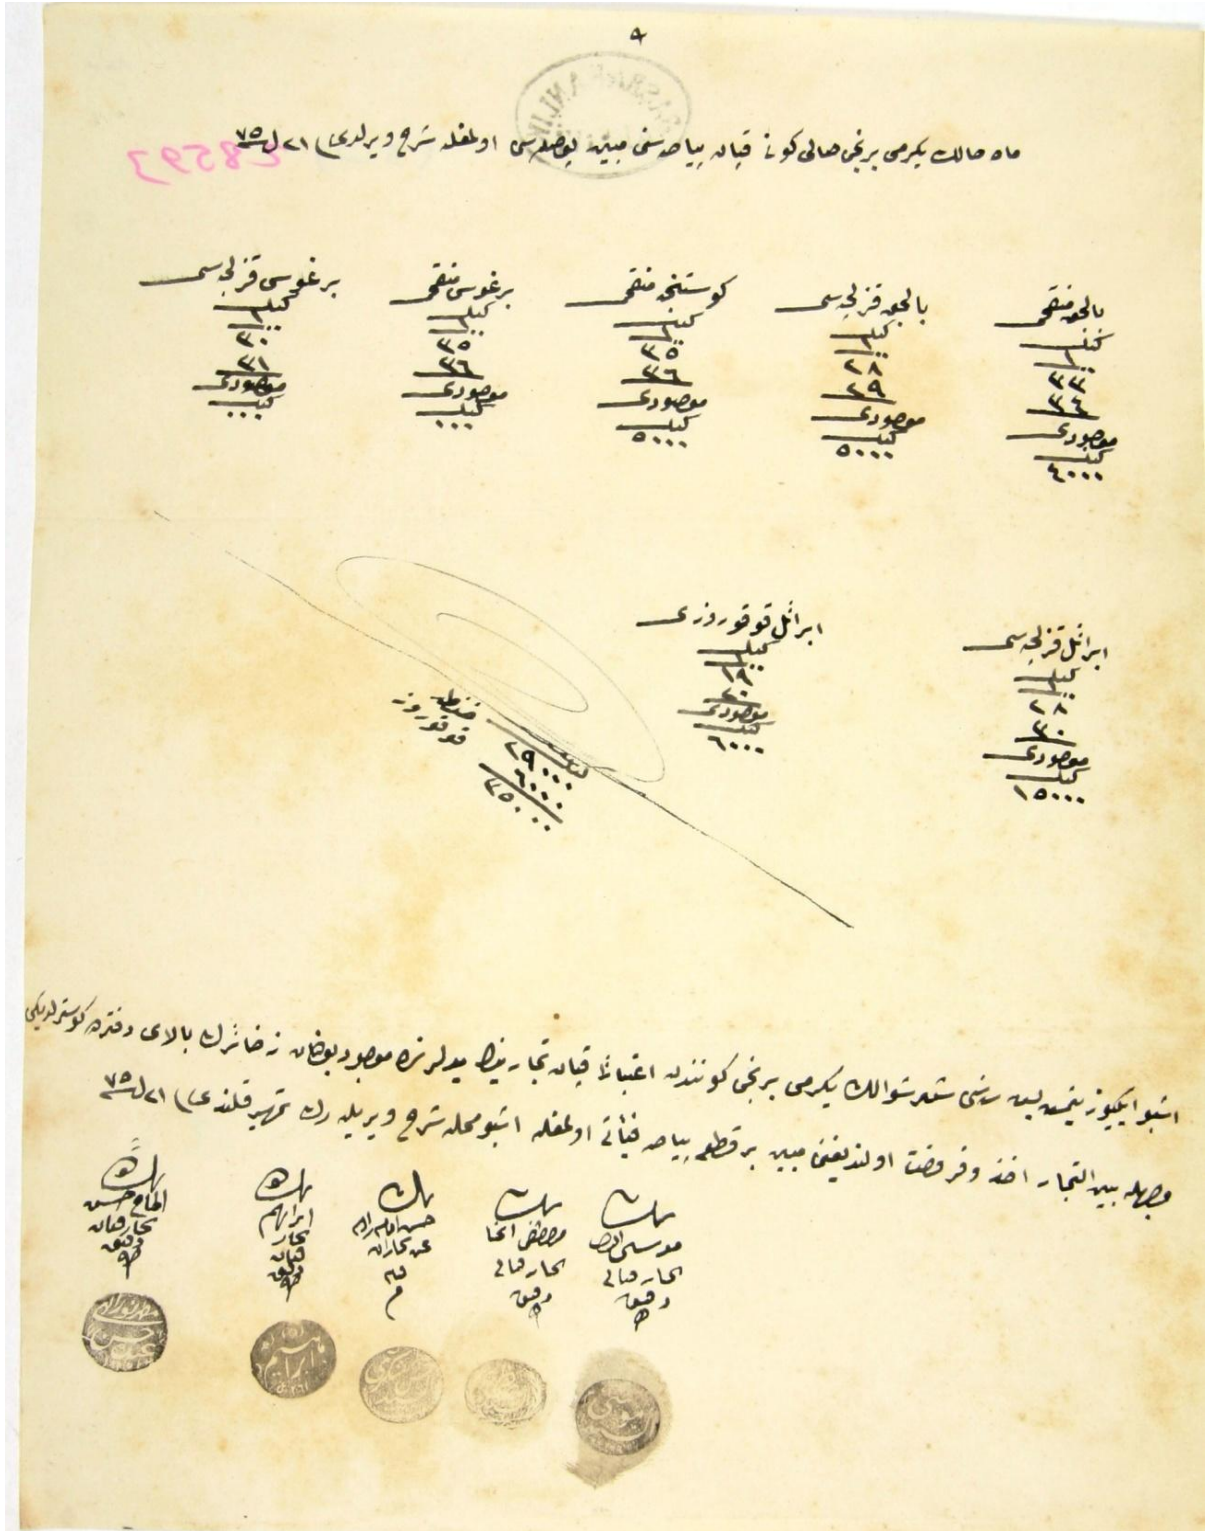 ٩
ماه حالك يكرمى برنجى صالى كونى قپان پياصه سنى مبين پوصله سى اولمغله شرح ويرلدى ٢١ ل ٧٥
بالچق منتقى
كيله
٣٣
٣٤
موجودى
كيله
٤٠٠٠٠
بالچق قزلجه سى
كيله
٢٨
٢٩
موجودى
كيله
٥٠٠٠٠
كوستنجه منتقى
كيله
٣٥
٣٦
موجودى
كيله
٥٠٠٠٠
برغوس منتقى
كيله
٣٥
٣٦
موجودى
كيله
٠٠٠
برغوس قزلجه سى
كيله
٣٠
٣١
موجودى
كيله
٠٠٠
ابرائل قزلجه سى
كيله
٢٨
٣٠
موجودى
كيله
١٥٠٠٠٠
ابرائل قوقوروزى
كيله
١٩
٢٠
موجودى
كيله
٦٠٠٠٠
كيله
حنطه ٢٩٠٠٠٠
قوقوروز ٦٠٠٠٠
٣٥٠٠٠٠
اشبو ايكيوز يتمش بش سنه سى شهر شوالك يكرمى برنجى كونندن اعتبارا قپان تجار يدلرنده موجود بولنان ذخائرك بالاى دفترده كوستريلديكى
وجهله بين التجار اخذ وفروخت اولنديغنى مبين بر قطعه پياصه فيئاتى اولمغله اشبو محله شرح ويريله رك تمهير قلندى ٢١ ل ٧٥
بنده
موسى
تجار قپانى
دقيق
بنده
مصطفى اغا
تجار قپانى
دقيق
بنده
حسن امام زاده
عن تجاران
بنده
ابراهيم
تجار
قپان
دقيق
بنده
الحاج حسن
تجار قپان
دقيق